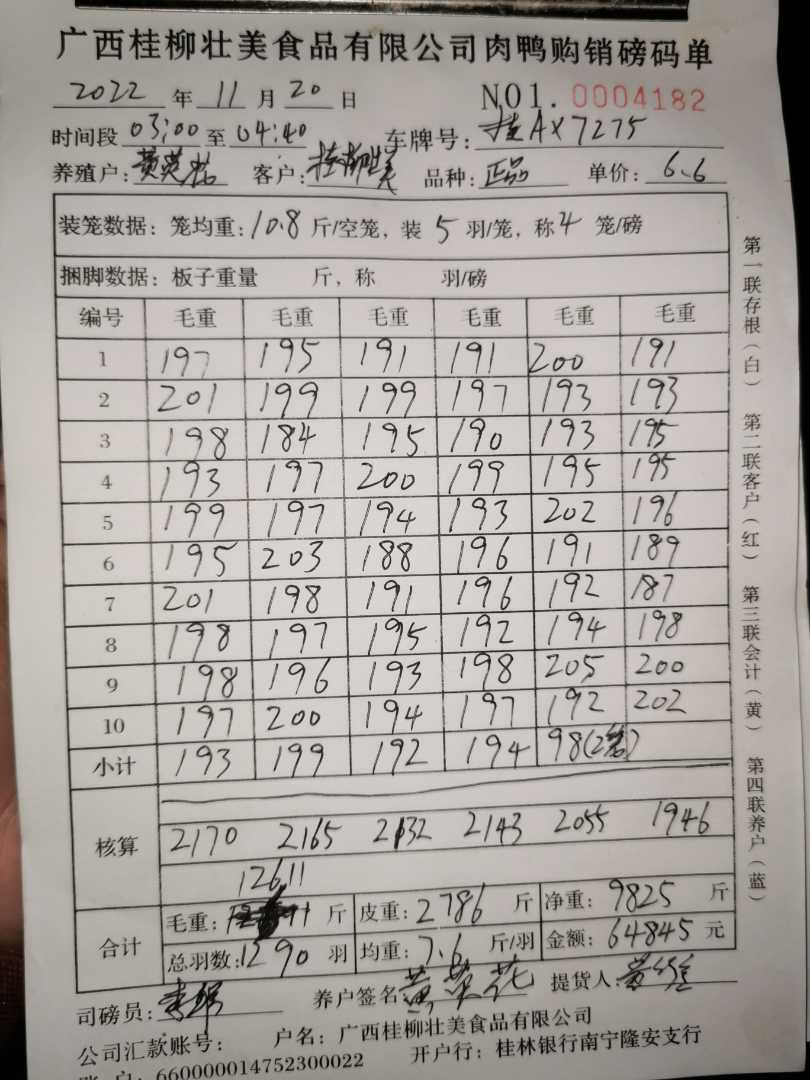 广西桂柳壮美食品有限公司肉鸭购销磅码单
2022 年 11 月 20 日 NO1. 0004182
时间段 03:00 至 04:40 车牌号: 桂AX7275
养殖户: 黄荣花 客户: 桂柳壮美 品种: 正品 单价: 6.6
装笼数据: 笼均重: 10.8 斤/空笼, 装 5 羽/笼, 称 4 笼/磅
捆脚数据: 板子重量 斤, 称 羽/磅
编号 毛重 毛重 毛重 毛重 毛重 毛重
1 197 195 191 191 200 191
2 201 199 199 197 193 193
3 198 184 195 190 193 195
4 193 197 200 199 195 195
5 199 197 194 193 202 196
6 195 203 188 196 191 189
7 201 198 191 196 192 187
8 198 197 195 192 194 198
9 198 196 193 198 205 200
10 197 200 194 197 192 202
小计 193 199 192 194 98(2笼)
核算 2170 2165 2132 2143 2055 1946
12611
合计 毛重: 斤 皮重: 2786 斤 净重: 9825 斤
总羽数: 1290 羽 均重: 7.6 斤/羽 金额: 64845 元
司磅员: 养户签名: 黄荣花 提货人:
公司汇款账号: 户名: 广西桂柳壮美食品有限公司
账 户: 660000014752300022 开户行: 桂林银行南宁隆安支行
第一联存根(白) 第二联客户(红) 第三联会计(黄) 第四联养户(蓝)